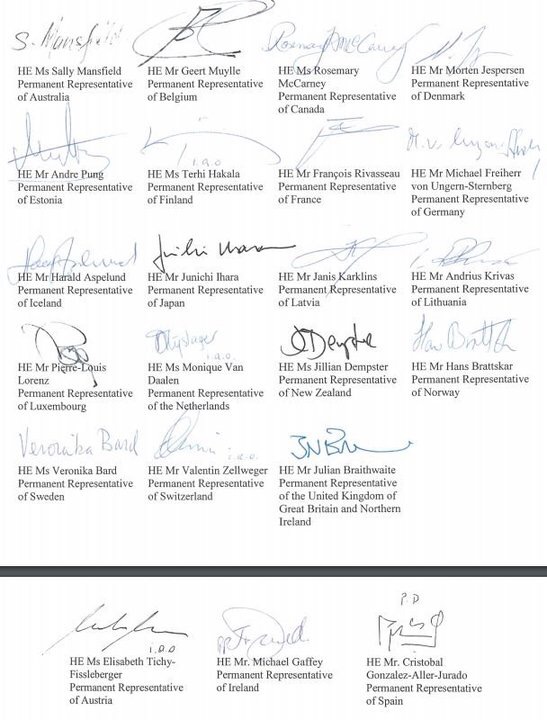 S. Mansfield
Rosemary McCarney
HE Ms Sally Mansfield
Permanent Representative
of Australia
HE Mr Geert Muylle
Permanent Representative
of Belgium
HE Ms Rosemary
McCarney
Permanent Representative
of Canada
HE Mr Morten Jespersen
Permanent Representative
of Denmark
i.a.o
HE Mr Andre Pung
Permanent Representative
of Estonia
HE Ms Terhi Hakala
Permanent Representative
of Finland
HE Mr François Rivasseau
Permanent Representative
of France
HE Mr Michael Freiherr
von Ungern-Sternberg
Permanent Representative
of Germany
HE Mr Harald Aspelund
Permanent Representative
of Iceland
HE Mr Junichi Ihara
Permanent Representative
of Japan
HE Mr Janis Karklins
Permanent Representative
of Latvia
HE Mr Andrius Krivas
Permanent Representative
of Lithuania
i.a.o.
JDempster
Hans Brattskar
HE Mr Pierre-Louis
Lorenz
Permanent Representative
of Luxembourg
HE Ms Monique Van
Daalen
Permanent Representative
of the Netherlands
HE Ms Jillian Dempster
Permanent Representative
of New Zealand
HE Mr Hans Brattskar
Permanent Representative
of Norway
Veronika Bard
i.a.o.
HE Ms Veronika Bard
Permanent Representative
of Sweden
HE Mr Valentin Zellweger
Permanent Representative
of Switzerland
HE Mr Julian Braithwaite
Permanent Representative
of the United Kingdom of
Great Britain and Northern
Ireland
i.a.o
PD
HE Ms Elisabeth Tichy-
Fissleberger
Permanent Representative
of Austria
HE Mr. Michael Gaffey
Permanent Representative
of Ireland
HE Mr. Cristobal
Gonzalez-Aller-Jurado
Permanent Representative
of Spain